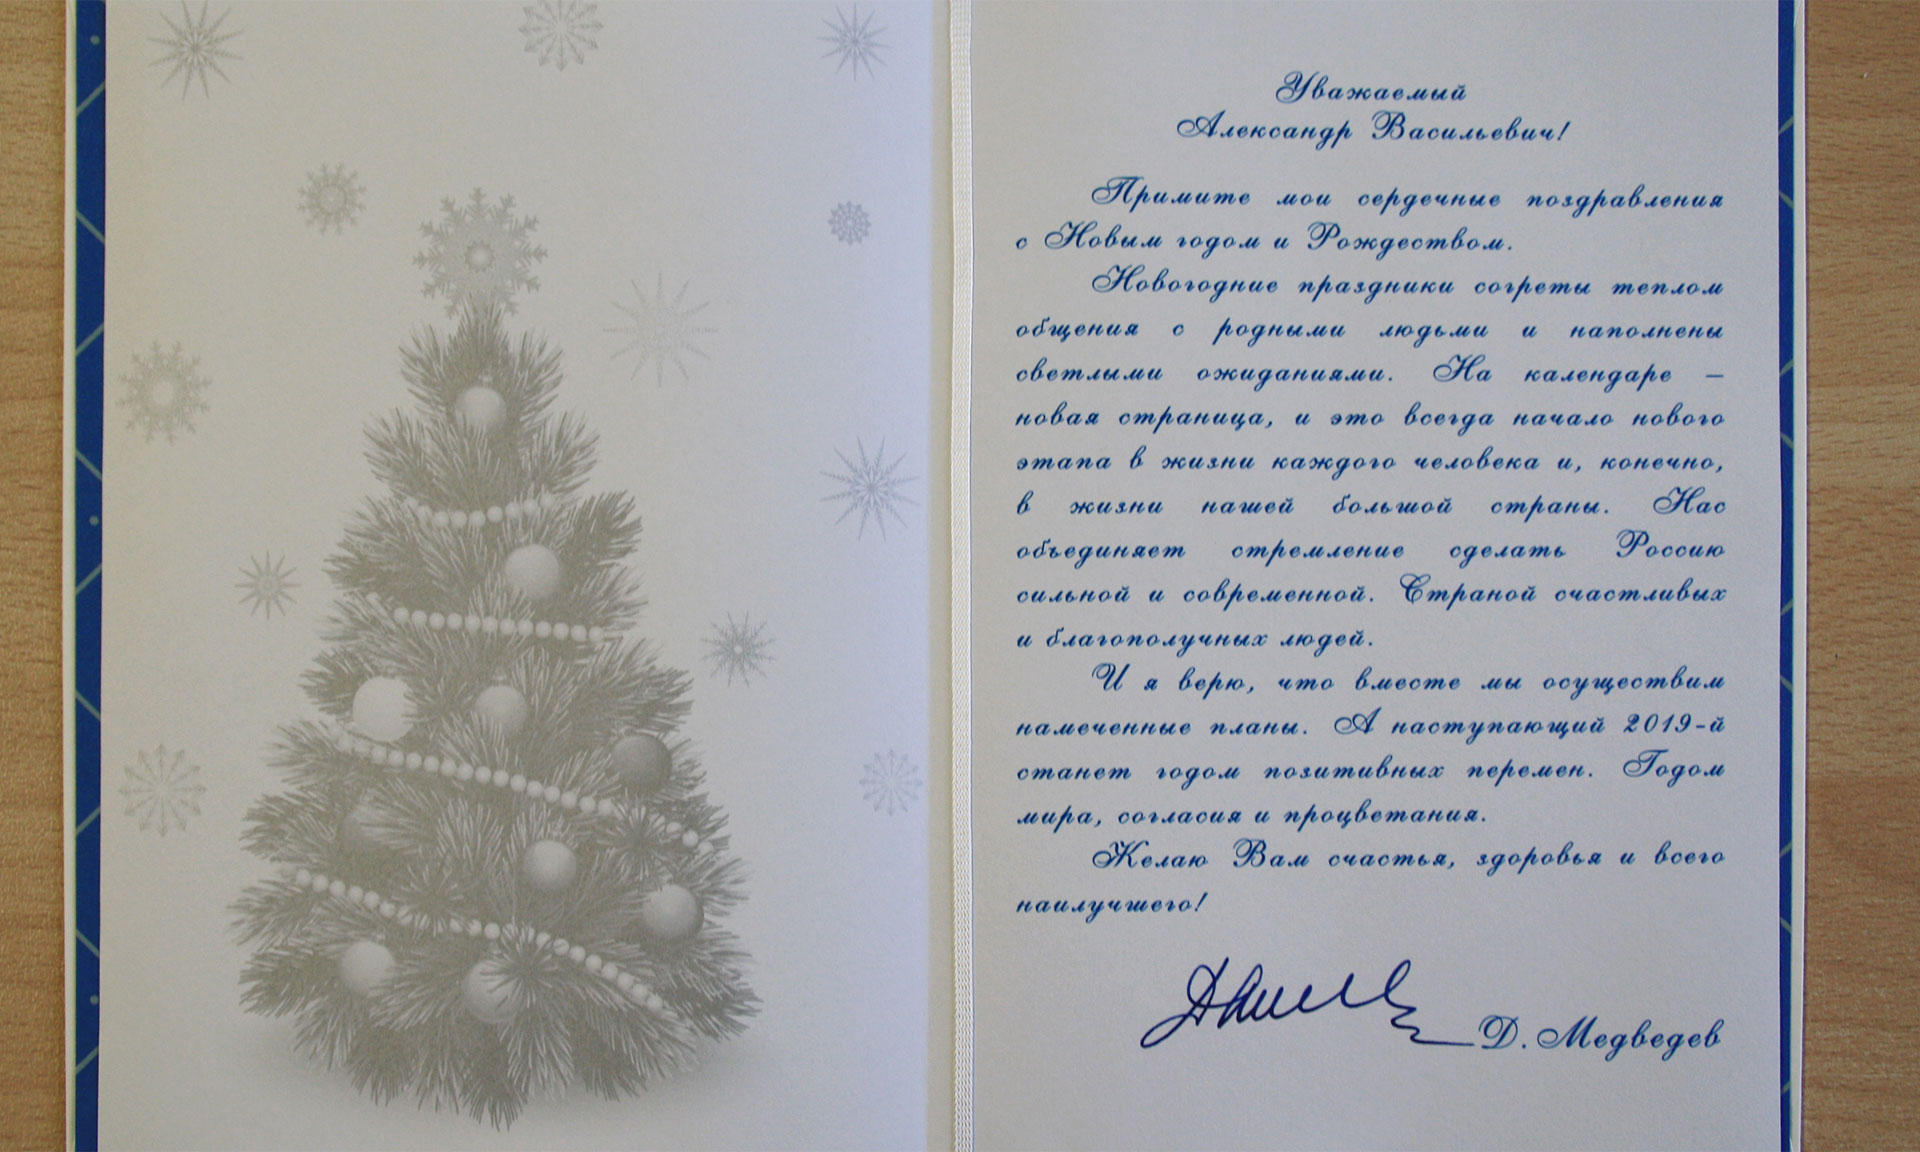 Уважаемый
Александр Васильевич!
Примите мои сердечные поздравления
с Новым годом и Рождеством.
Новогодние праздники согреты теплом
общения с родными людьми и наполнены
светлыми ожиданиями. На календаре –
новая страница, и это всегда начало нового
этапа в жизни каждого человека и, конечно,
в жизни нашей большой страны. Нас
объединяет стремление сделать Россию
сильной и современной. Страной счастливых
и благополучных людей.
И я верю, что вместе мы осуществим
намеченные планы. А наступающий 2019-й
станет годом позитивных перемен. Годом
мира, согласия и процветания.
Желаю Вам счастья, здоровья и всего
наилучшего!
Д. Медведев